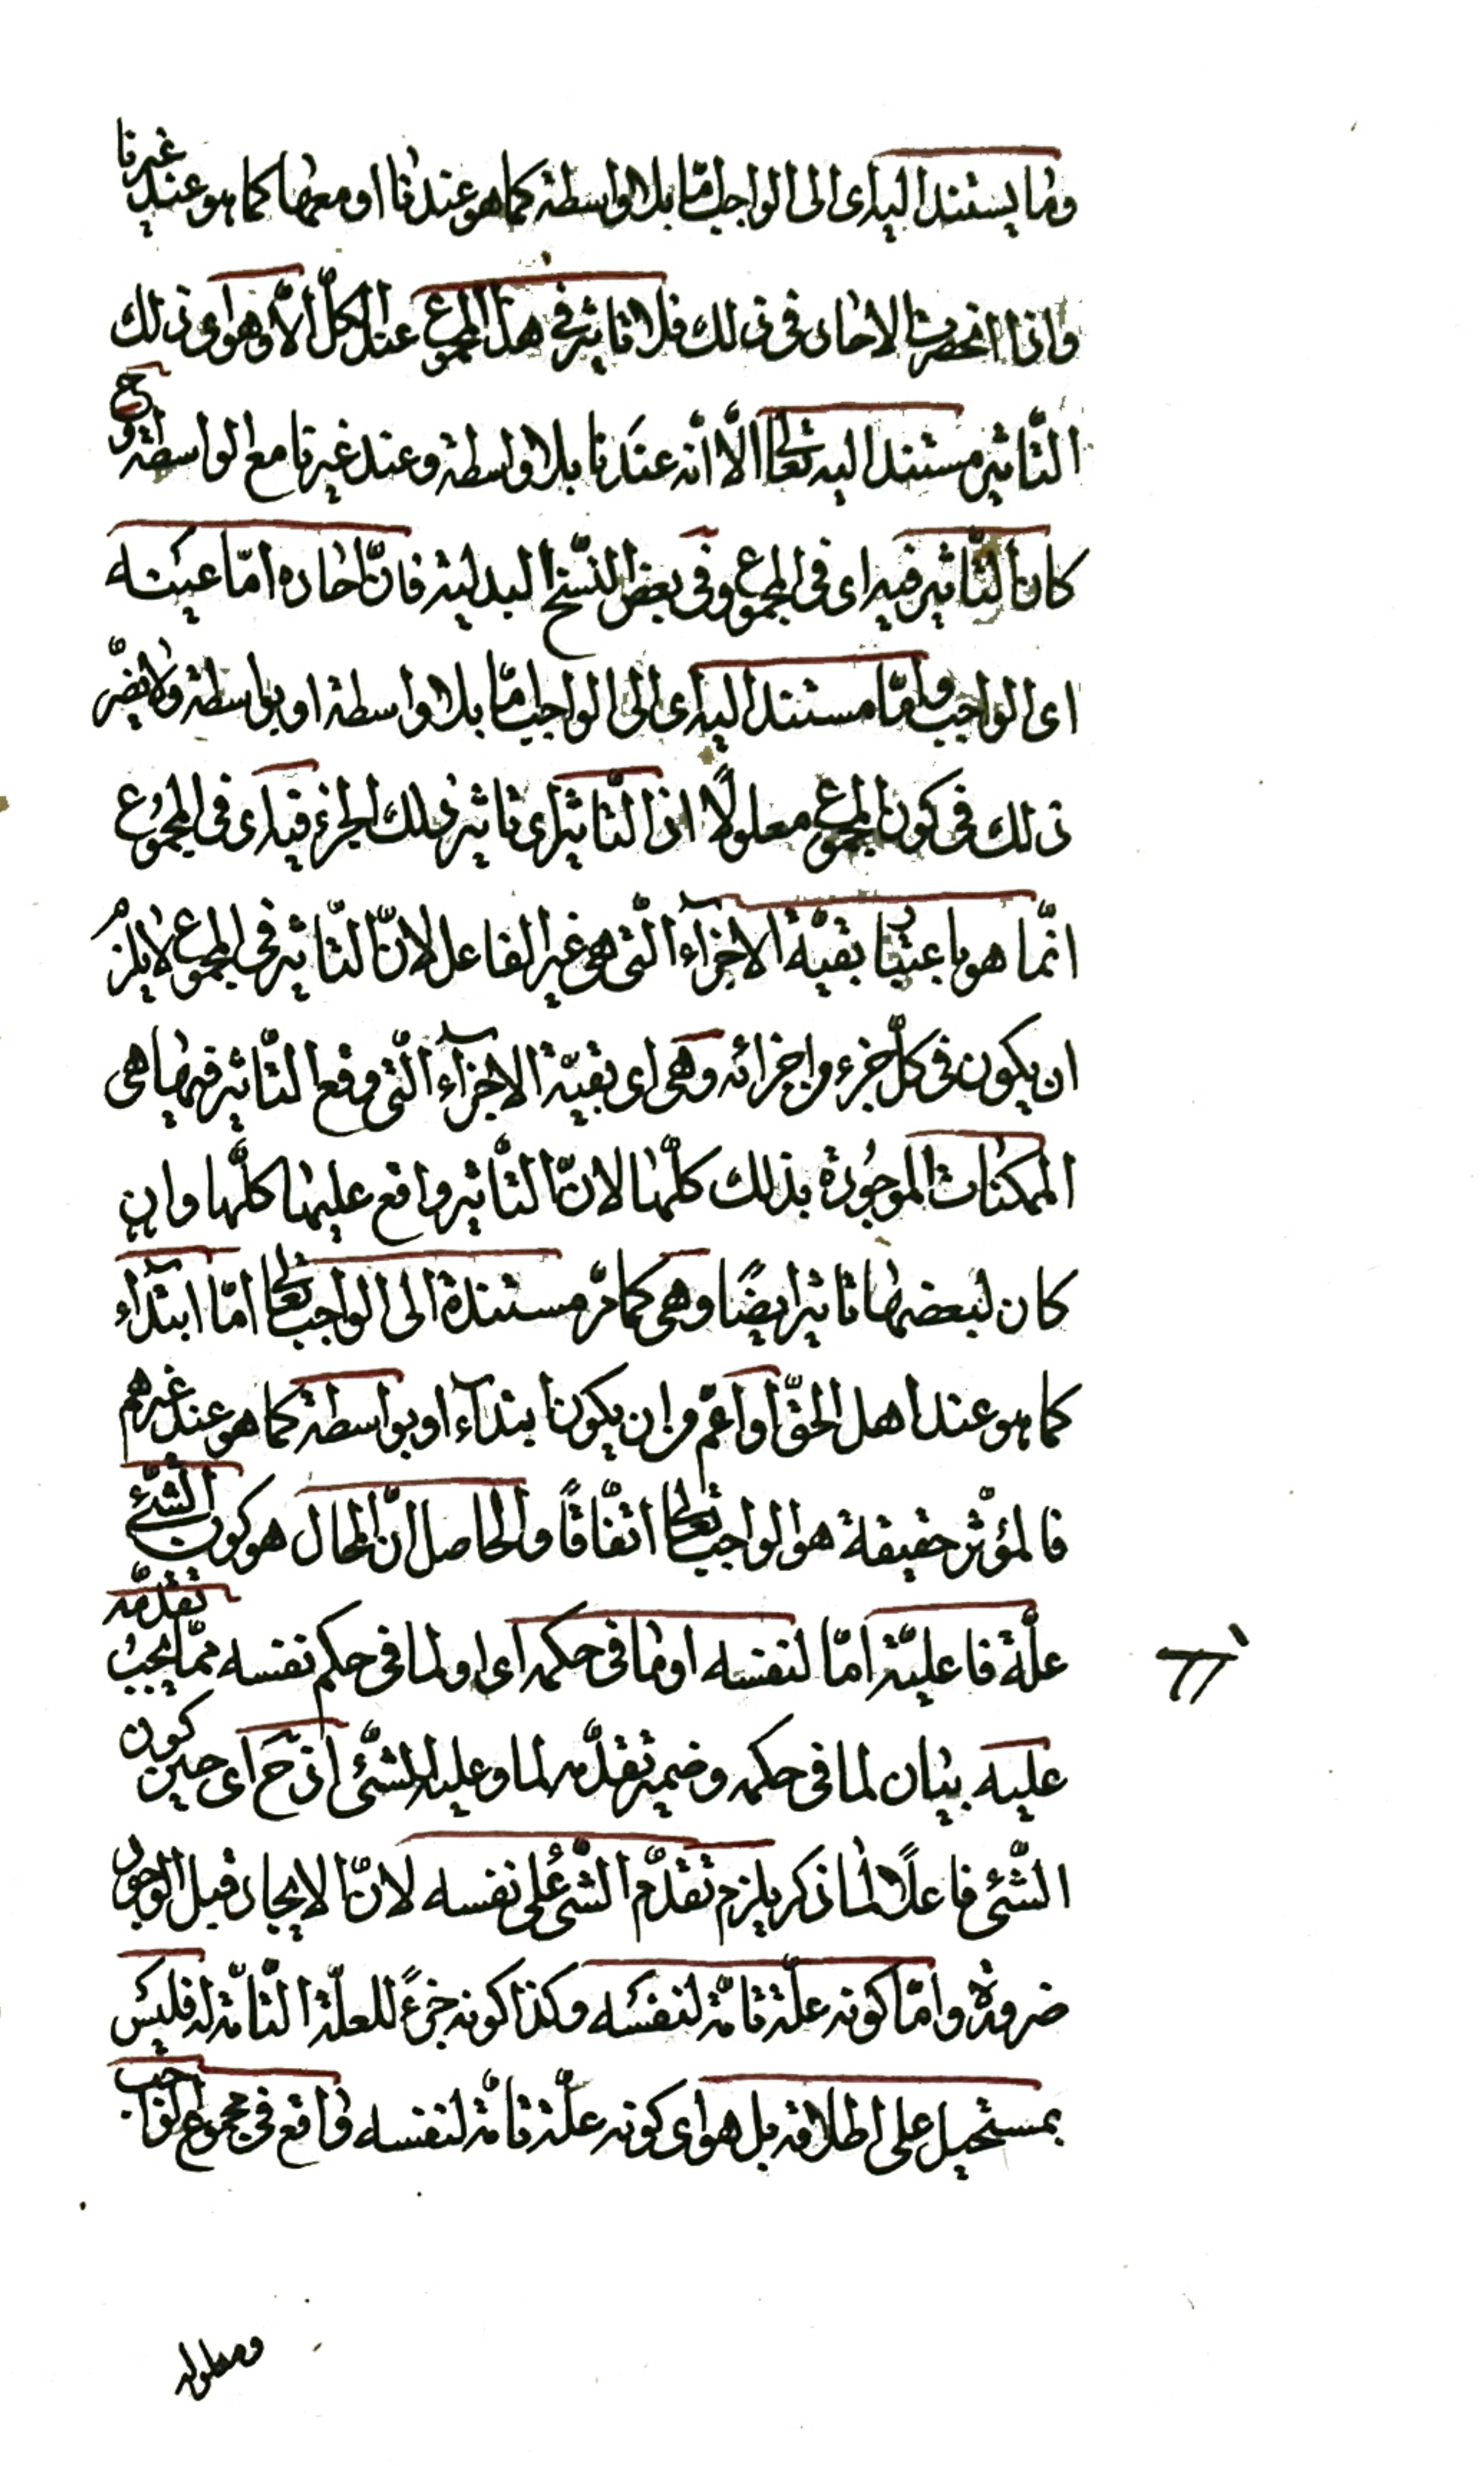 وما يستند اليه اى الى الواجب امّا بلا واسطة كما هو عندنا او معها كما هو عند غيرنا
واذا انحصرت الاحاد فى ذلك فلا تاثير فى هذا المجموع عند الكلّ الّا وهو اى ذلك
التّاثير مستند اليه تعالى الّا انّه عندنا بلا واسطة وعند غيرنا مع الواسطة وح
كان التّاثير فيه اى فى المجموع وفى بعض النّسخ البدلية فانّ احاده امّا عينه
اى الواجب وامّا مستند اليه اى الى الواجب امّا بلا واسطة او بواسطة ولا يضرّ
ذلك فى كون المجموع معلولًا اذ التّاثير اى تاثير ذلك الجزء فيه اى فى المجموع
انّما هو باعتبار بقيّة الاجزآء الّتى هى غير الفاعل لانّ التّاثير فى المجموع لا يلزم
ان يكون فى كلّ جزء من اجزائه وهى اى بقيّة الاجزآء الّتى وقع التّاثير فيها هى
الممكنات الموجُودة بذلك كلّها لانّ التّاثير واقع عليها كلّها وان
كان لبعضها تاثير ايضًا وهى كما مرّ مستندة الى الواجب تعالى امّا ابتدآء
كما هو عند اهل الحقّ او اعمّ من ان يكون ابتدآء او بواسطة كما هو عند غيرهم
فالمؤثّر حقيقة هو الواجب تعالى اتّفاقًا والحاصل انّ المحال هو كون الشّئ
علّة فاعليّة امّا لنفسه او ما فى حكمه اى او لما فى حكم نفسه ممّا يجبُ تقدّمه
عليه بيان لما فى حكمه وضمير تقدّمه لما وعليه للشّئ اذ ح اى حين كون
الشّئ فاعلًا لما ذكر يلزم تقدّم الشّئ على نفسه لانّ الايجاد قبل الوجود
ضرورة وامّا كونه علّة تامّة لنفسه وكذا كونه جزءً للعلّة التّامّة له فليس
بمستحيل على اطلاقه بل هو اى كونه علّة تامّة لنفسه واقع فى مجموع الواجب
ومعلوله